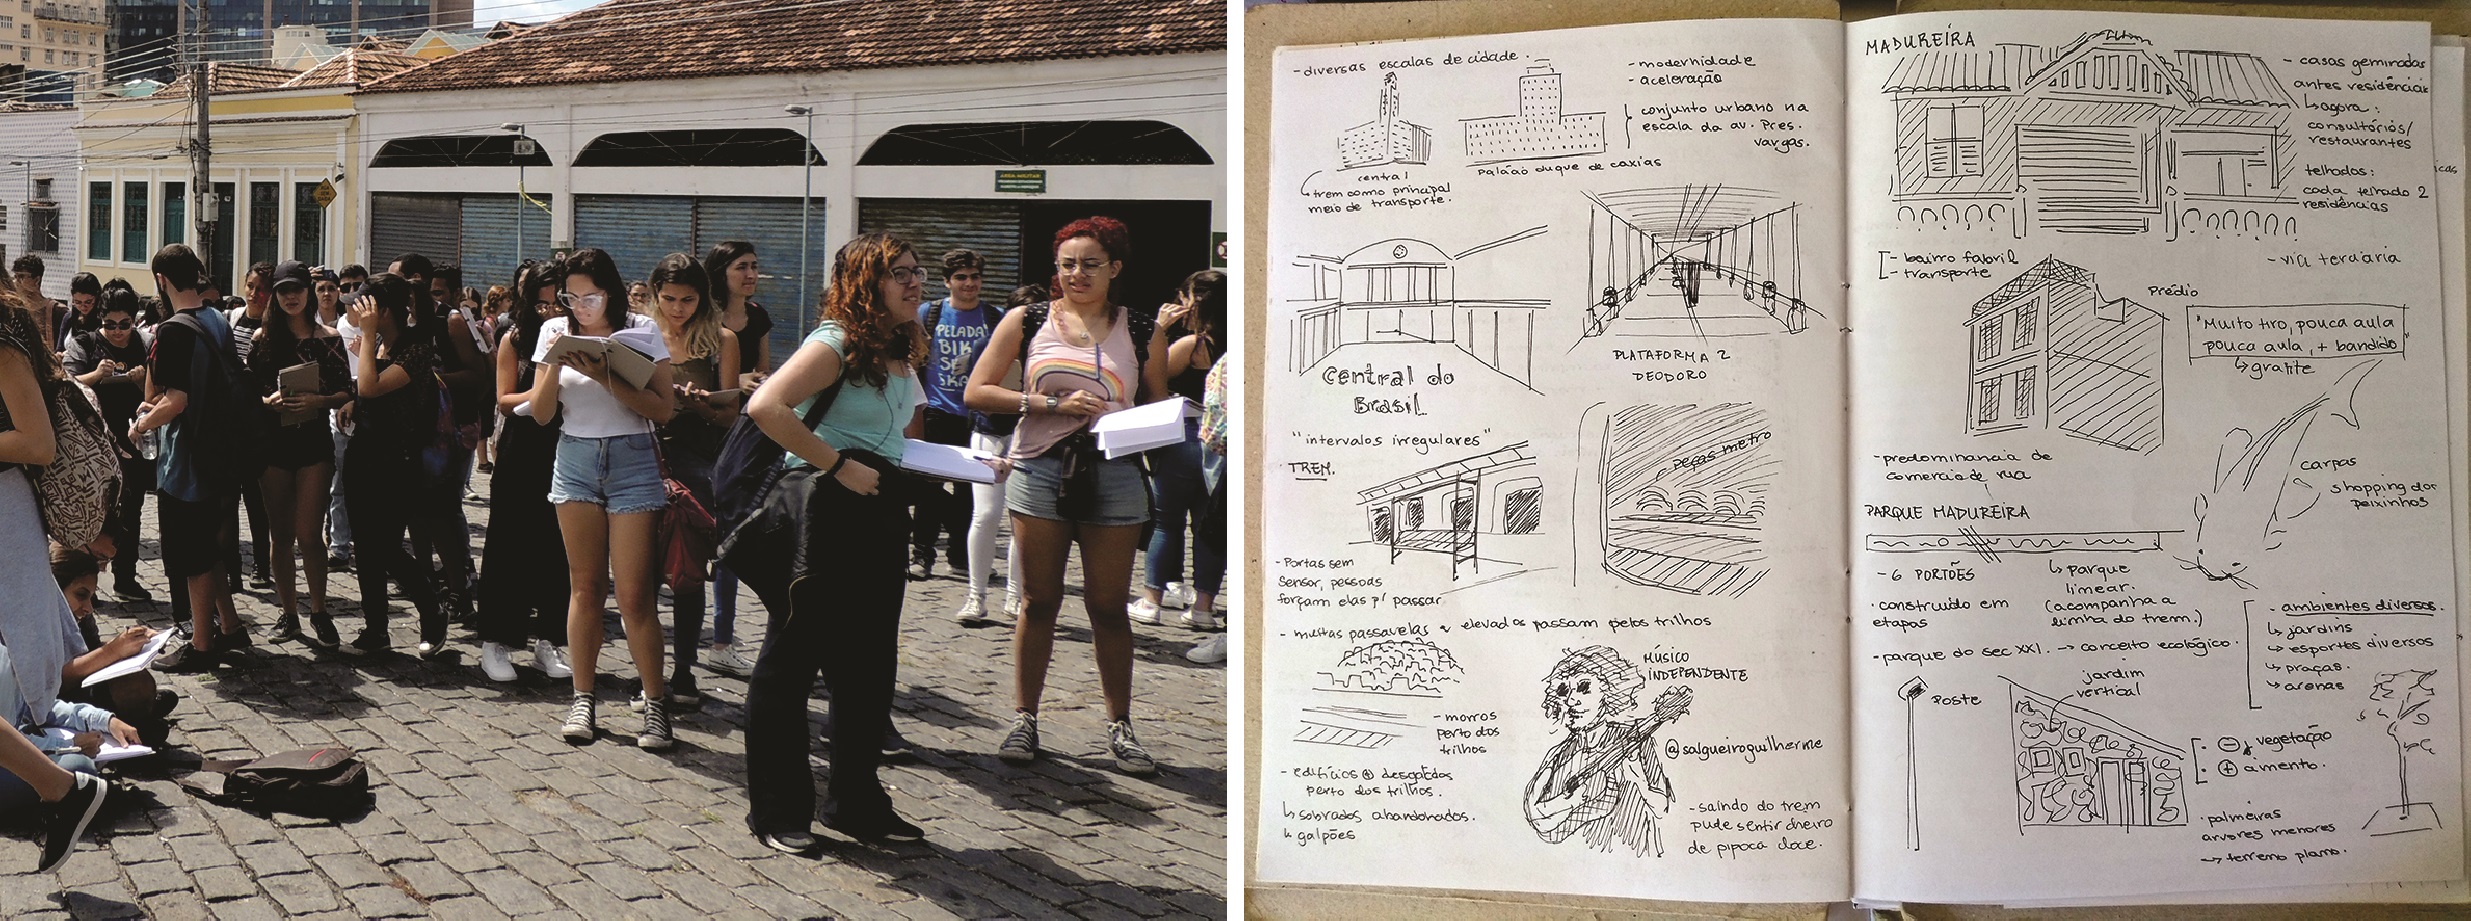 ÁREA MILITAR
PELADA
BIKE
SE
SKA
- diversas escalas de cidade.
- modernidade
- aceleração
conjunto urbano na
escala da av. Pres.
vargas.
central
Palácio duque de caxias
trem como principal
meio de transporte.
Central do
Brasil
PLATAFORMA 2
DEODORO
"intervalos irregulares"
TREM.
peças metro
- Portas sem
sensor, pessoas
forçam elas p/ passar
- muitas passarelas e elevados passam pelos trilhos
MÚSICO
INDEPENDENTE
- morros
perto dos
trilhos
@salgueiroguilherme
- edifícios ⊕ desgatados
perto dos trilhos.
↳ sobrados abandonados.
↳ galpões
- saindo do trem
pude sentir cheiro
de pipoca doce.
MADUREIRA
- casas geminadas
antes residências
↳ agora:
consultórios/
restaurantes
telhados:
cada telhado 2
residências
- bairro fabril
- transporte
- via terciária
Prédio
"Muito tiro, pouca aula
pouca aula, + bandido"
↳ grafite
- predominancia de
comercio de rua
carpas
shopping dos
peixinhos
PARQUE MADUREIRA
- 6 PORTÕES
↳ parque
linear.
(acompanha a
linha do trem.)
· construído em
etapas
- parque do sec XXI. → conceito ecológico.
- ambientes diversos.
↳ jardins
↳ esportes diversos
↳ praças.
↳ arenas
Poste
jardim
vertical
· ⊖ vegetação
· ⊕ cimento.
· palmeiras
arvores menores
→ terreno plano.